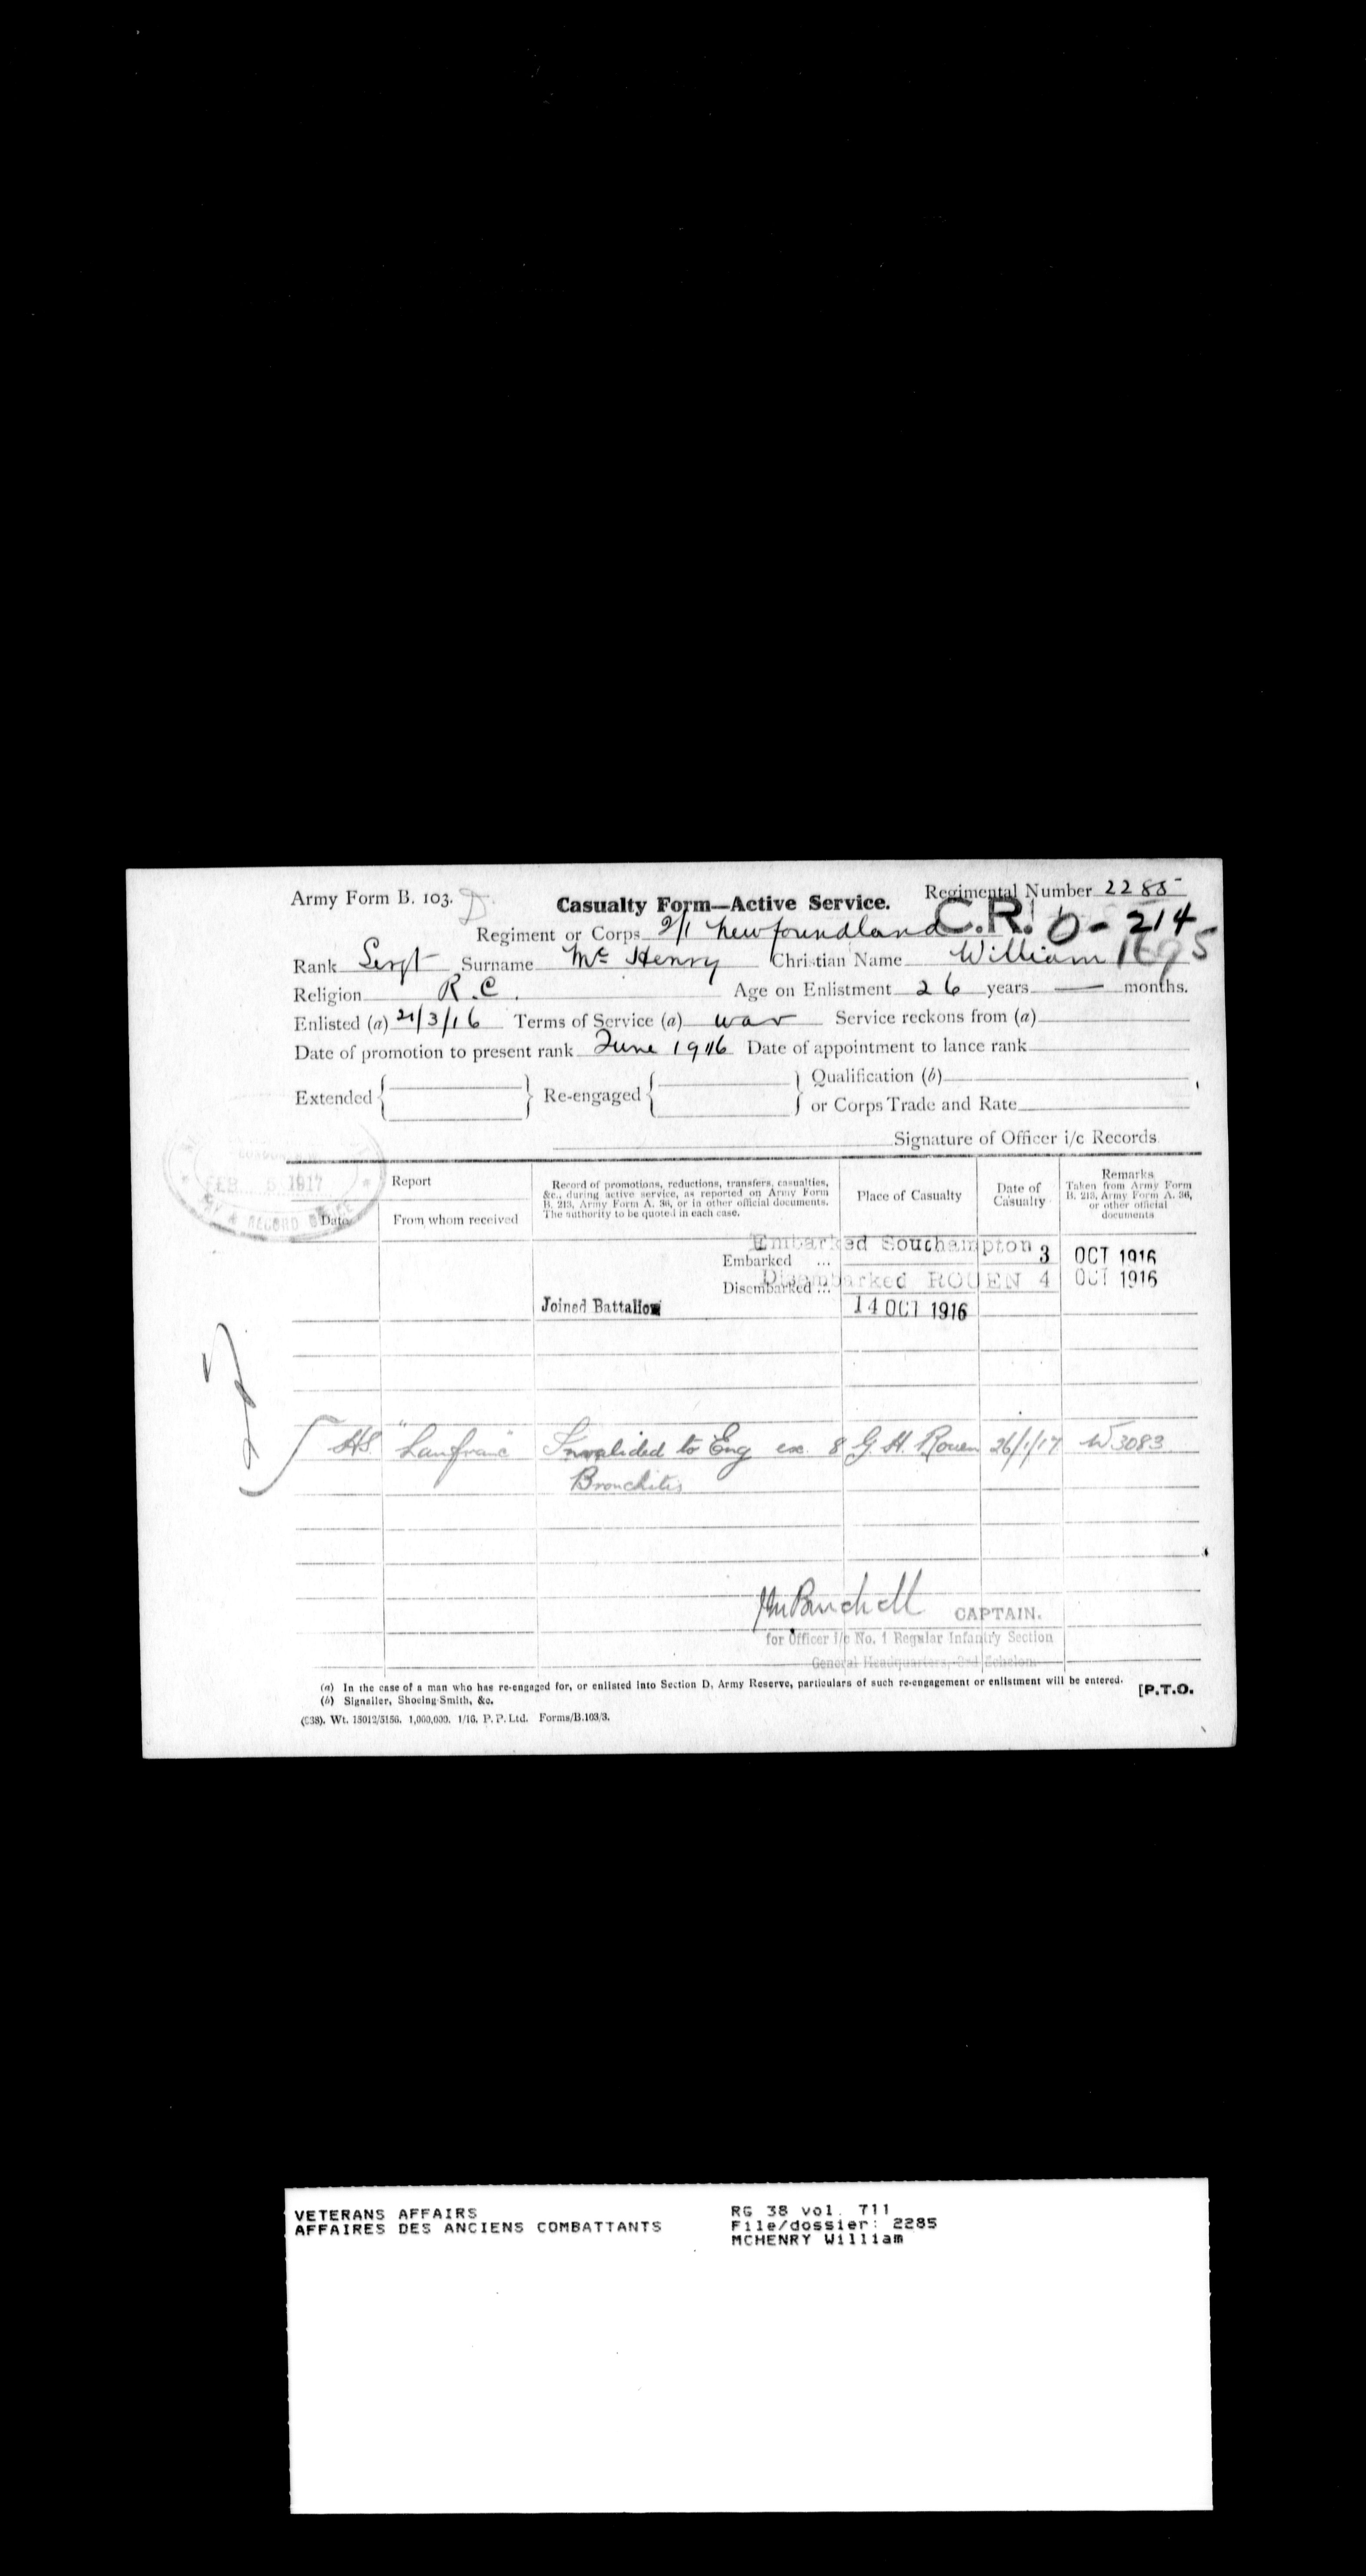 Army Form B. 103. D
Casualty Form—Active Service.
Regimental Number 2285
C.R. 6-214
Regiment or Corps 2/1 Newfoundland
1695
Rank Sergt Surname Mc Henry Christian Name William
Religion R.C. Age on Enlistment 26 years — months.
Enlisted (a) 21/3/16 Terms of Service (a) war Service reckons from (a)
Date of promotion to present rank June 1916 Date of appointment to lance rank
Extended Re-engaged Qualification (b)
or Corps Trade and Rate
Signature of Officer i/c Records
FEB 5 1917
RECORD
Report
Date
From whom received
Record of promotions, reductions, transfers, casualties,
&c., during active service, as reported on Army Form
B. 213, Army Form A. 36, or in other official documents.
The authority to be quoted in each case.
Place of Casualty
Date of
Casualty
Remarks
Taken from Army Form
B. 213, Army Form A. 36,
or other official
documents
Embarked Southampton 3 OCT 1916
Embarked ...
Disembarked ROUEN 4 OCT 1916
Disembarked ...
Joined Battalion 14 OCT 1916
HS "Lanfranc" Invalided to Eng ex. 8 G.H. Rouen 26/1/17 W3083
Bronchitis
CAPTAIN.
for Officer i/c No. 1 Regular Infantry Section
General Headquarters, 3rd Echelon
(a) In the case of a man who has re-engaged for, or enlisted into Section D, Army Reserve, particulars of such re-engagement or enlistment will be entered.
(b) Signaller, Shoeing-Smith, &c.
[P.T.O.
(C38). Wt. 15012/5156. 1,000,000. 1/16. P. P. Ltd. Forms/B.103/3.
VETERANS AFFAIRS
AFFAIRES DES ANCIENS COMBATTANTS
RG 38 vol. 711
File/dossier: 2285
MCHENRY William